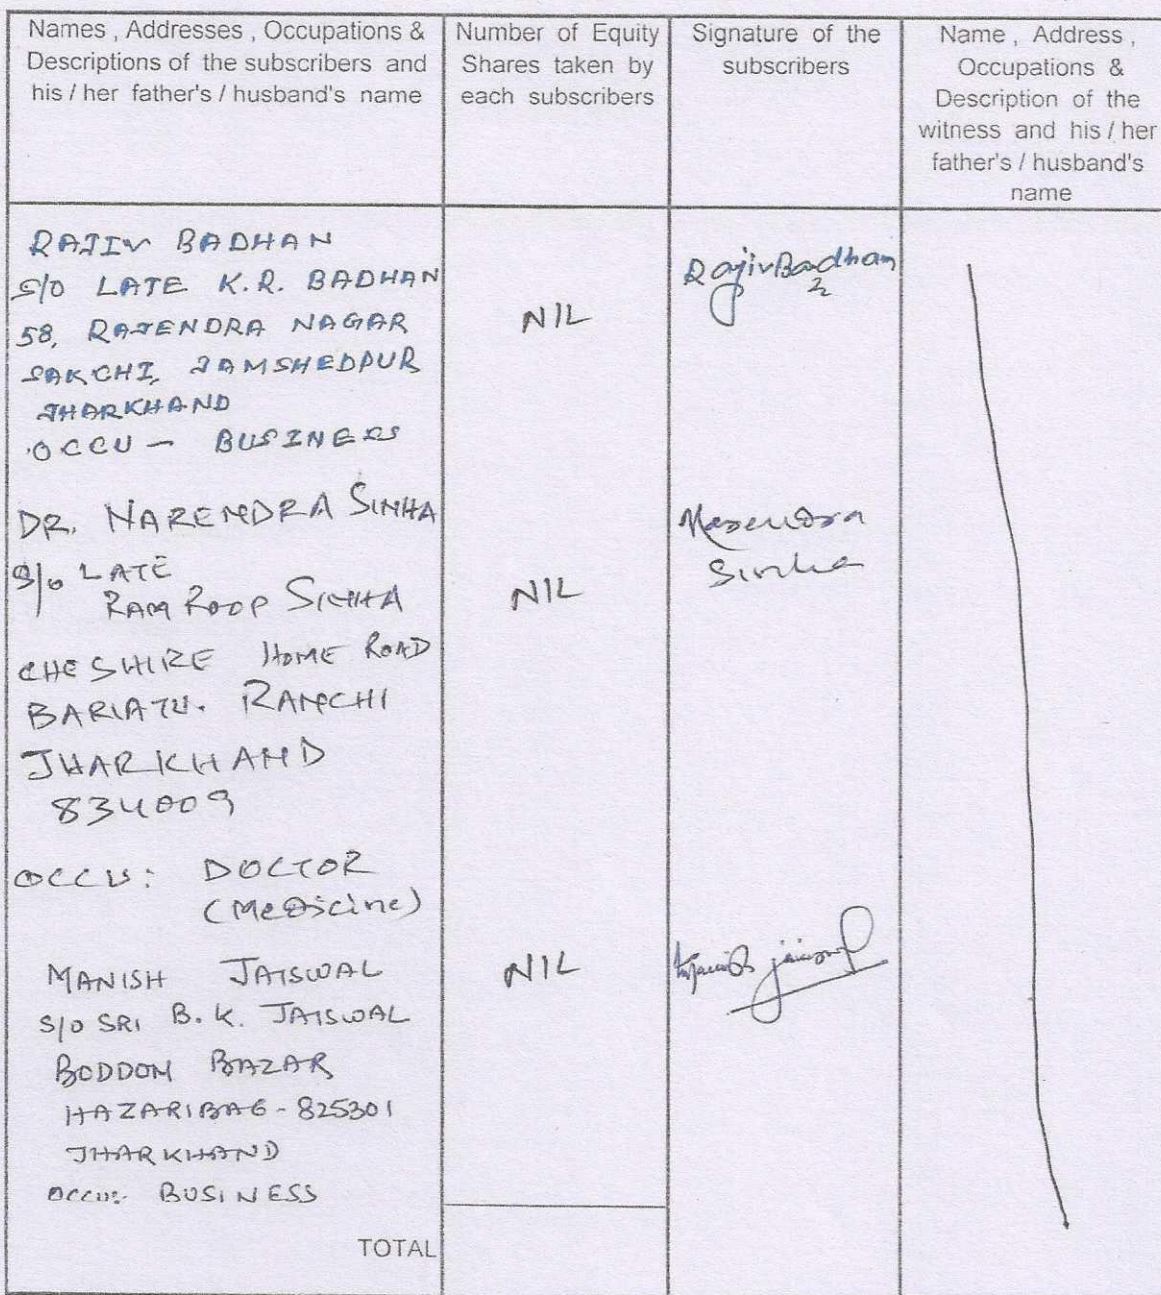 Names , Addresses , Occupations &
Descriptions of the subscribers and
his / her father's / husband's name
Number of Equity
Shares taken by
each subscribers
Signature of the
subscribers
Name , Address ,
Occupations &
Description of the
witness and his / her
father's / husband's
name
RAJIV BADHAN
S/O LATE K.R. BADHAN
58, RAJENDRA NAGAR
SAKCHI, JAMSHEDPUR
JHARKHAND
OCCU - BUSINESS
NIL
Rajiv Badhan
DR. NARENDRA SINHA
S/o LATE
RAM ROOP SINHA
CHESHIRE HOME ROAD
BARIATU. RANCHI
JHARKHAND
834009
OCCU: DOCTOR
(Medicine)
NIL
Narendra
Sinha
MANISH JAISWAL
S/O SRI B.K. JAISWAL
BODDOM BAZAR
HAZARIBAG - 825301
JHARKHAND
OCCU:- BUSINESS
NIL
Manish jaiswal
TOTAL